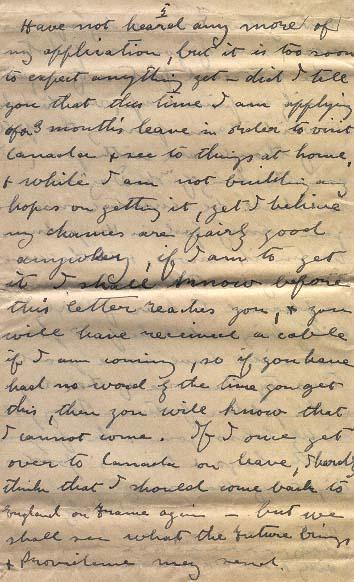 5
Have not heard any more of
my application, but it is too soon
to expect anything yet - did I tell
you that this time I am applying
for 3 month's leave in order to visit
Canada & see to things at home,
& while I am not building any
hopes on getting it, yet I believe
my chances are fairly good
anywhere, if I am to get
it I shall know before
this letter reaches you, & you
will have received a cable
if I am coming, so if you have
had no word by the time you get
this, then you will know that
I cannot come. If I once get
over to Canada on leave, I hardly
think that I should come back to
England or France again - but we
shall see what the Future brings
& Providence may send.